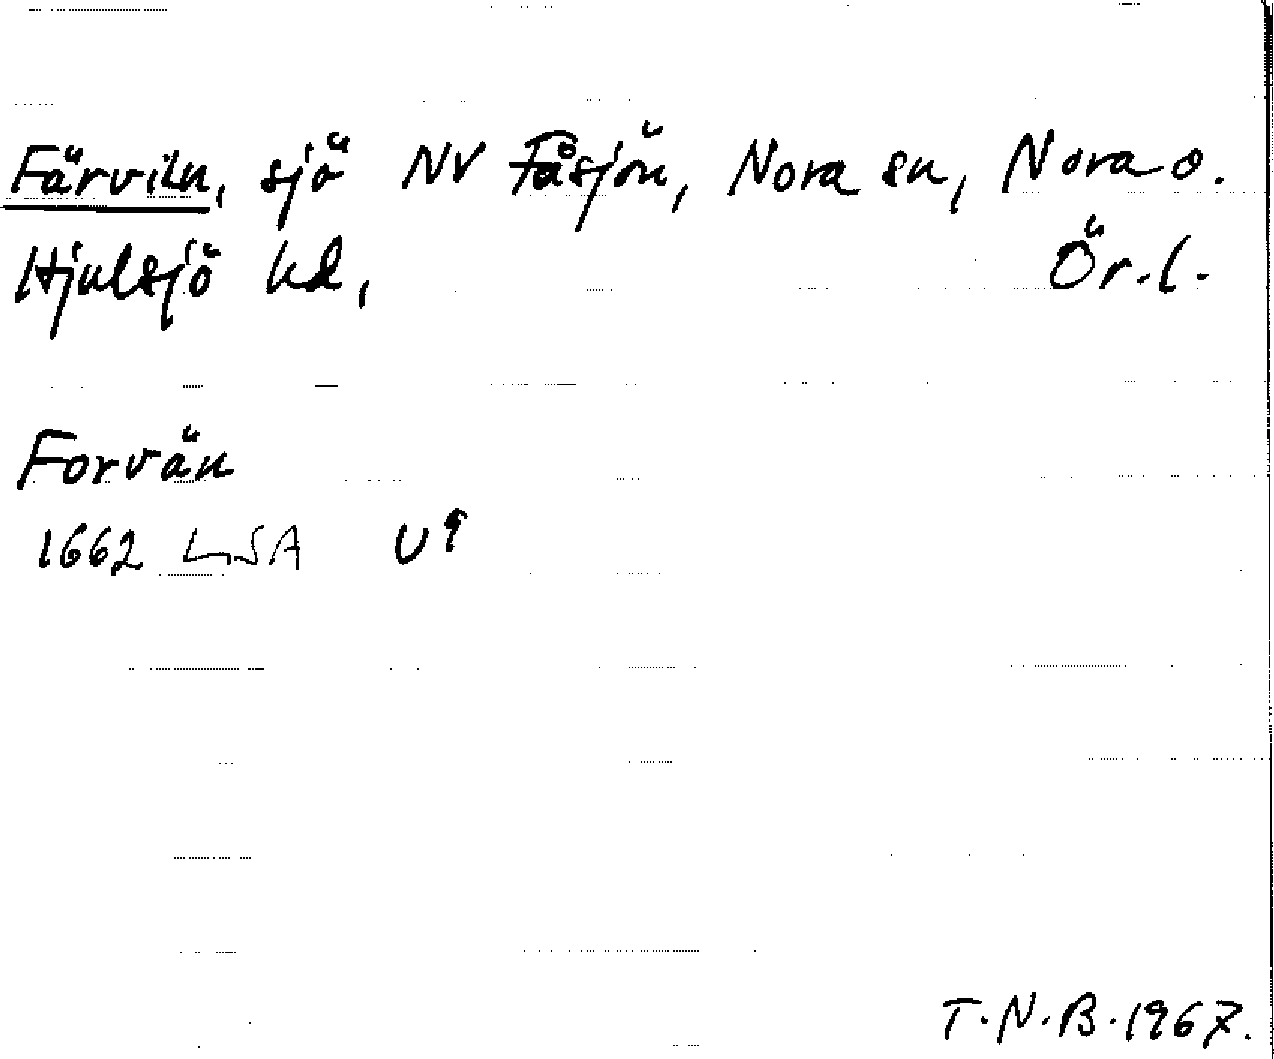 Färviln, sjö NV Fåsjön, Nora sn, Nora o.
Hjulsjö hd, Ör.l.
Forvän
1662 LSA U9
T.N.B. 1967.